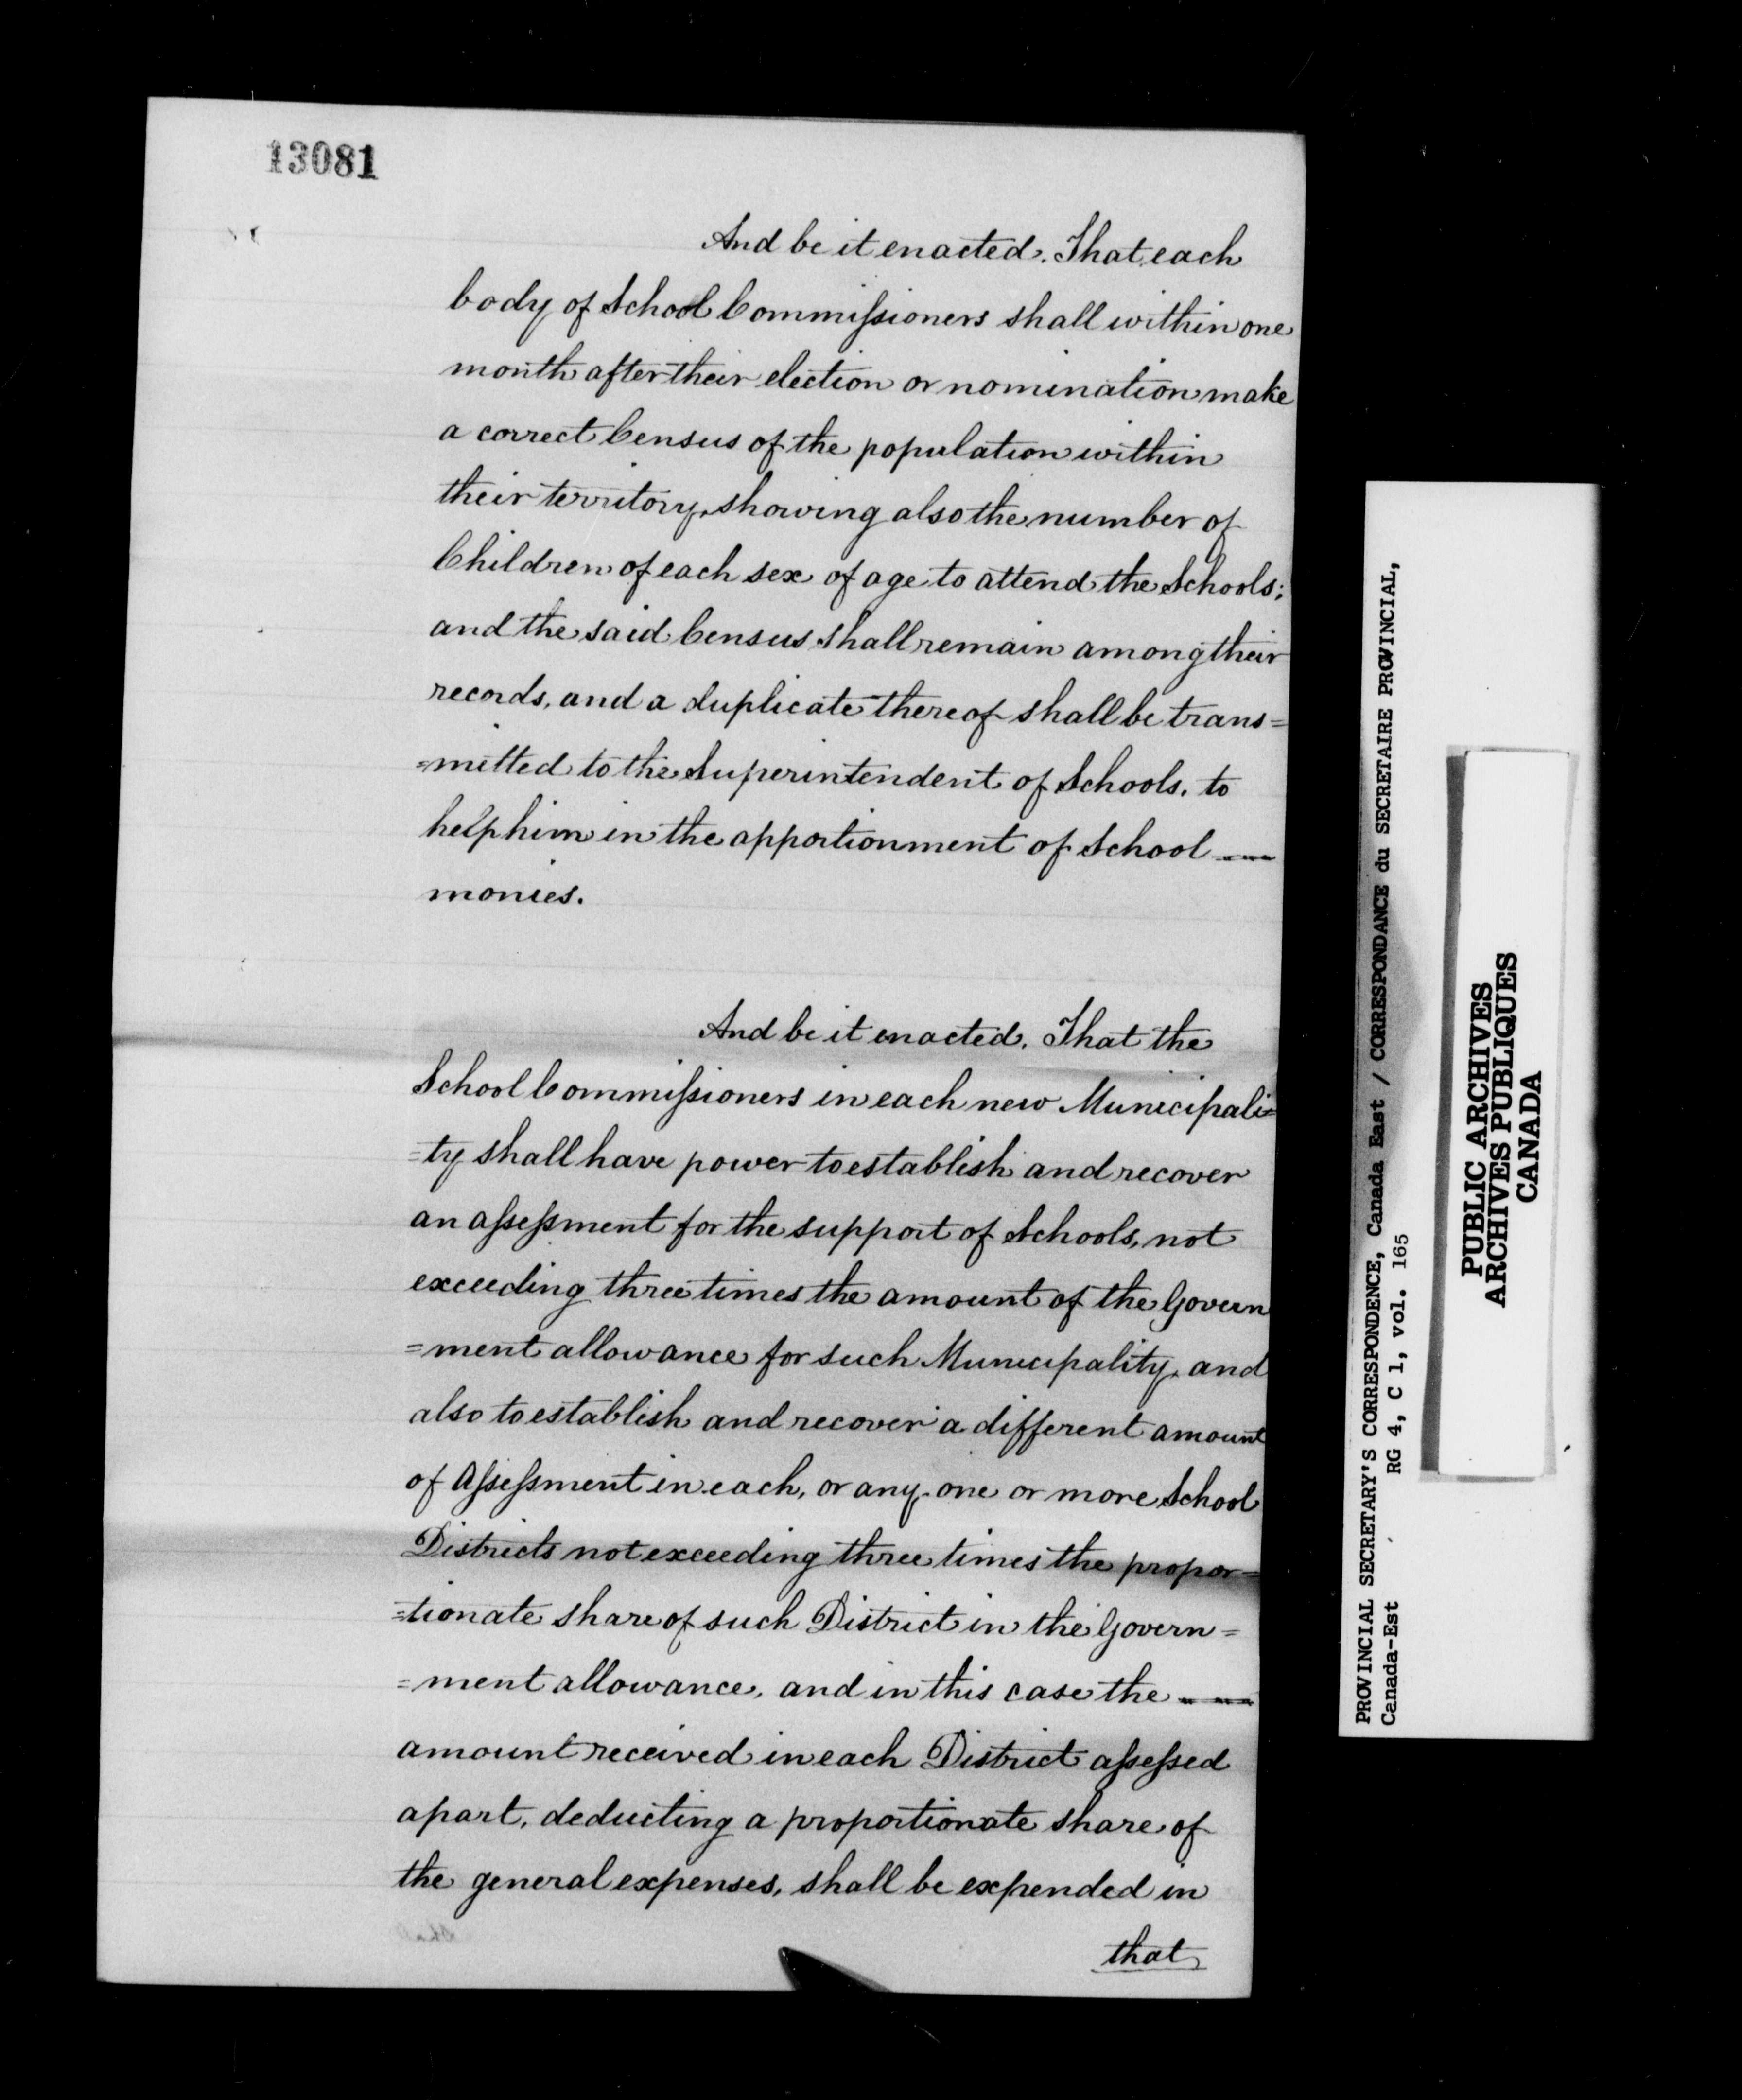 13081
And be it enacted. That each
body of School Commissioners shall within one
month after their election or nomination make
a correct Census of the population within
their territory, showing also the number of
Children of each sex of age to attend the Schools;
and the said Census shall remain among their
records, and a duplicate thereof shall be trans=
=mitted to the Superintendent of Schools, to
help him in the apportionment of School
monies.
And be it enacted. That the
School Commissioners in each new Municipali=
=ty shall have power to establish and recover
an assessment for the support of Schools, not
exceeding three times the amount of the Govern
=ment allowance for such Municipality, and
also to establish and recover a different amount
of Assessment in each, or any one or more School
Districts not exceeding three times the propor=
=tionate share of such District in the Govern=
=ment allowance, and in this case the
amount received in each District assessed
apart, deducting a proportionate share of
the general expenses, shall be expended in
that
PROVINCIAL SECRETARY'S CORRESPONDENCE, Canada East / CORRESPONDANCE du SECRETAIRE PROVINCIAL,
Canada-Est RG 4, C 1, vol. 165
PUBLIC ARCHIVES
ARCHIVES PUBLIQUES
CANADA